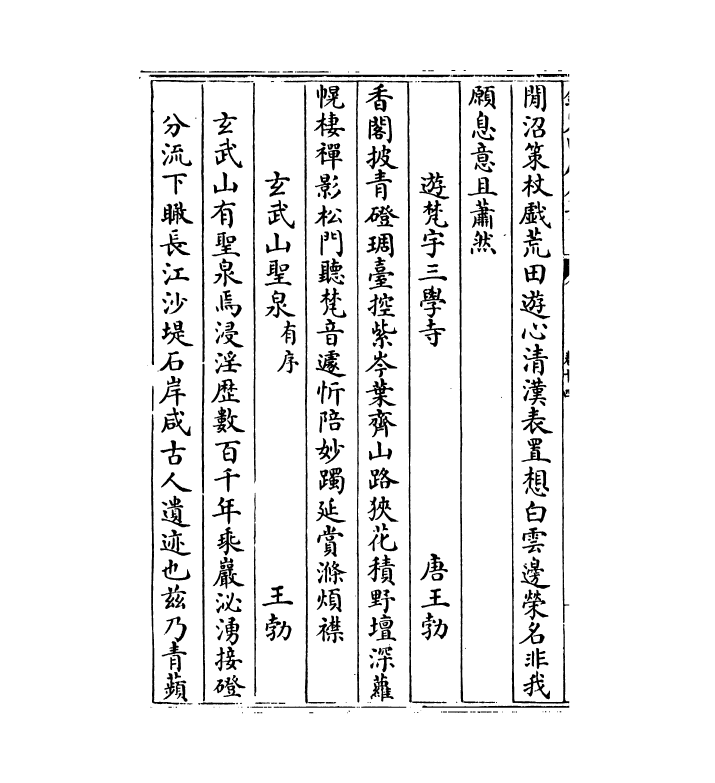 閒沼策杖戲荒田遊心清漢表置想白雲邊榮名非我
願息意且蕭然
遊梵宇三學寺 唐王勃
香閣披青磴琱臺控紫岑葉齊山路狹花積野壇深蘿
幌棲禪影松門聽梵音遽忻陪妙躅延賞滌煩襟
玄武山聖泉有序 王勃
玄武山有聖泉焉浸淫歷數百千年乘巖泌湧接磴
分流下瞰長江沙堤石岸咸古人遺迹也茲乃青蘋